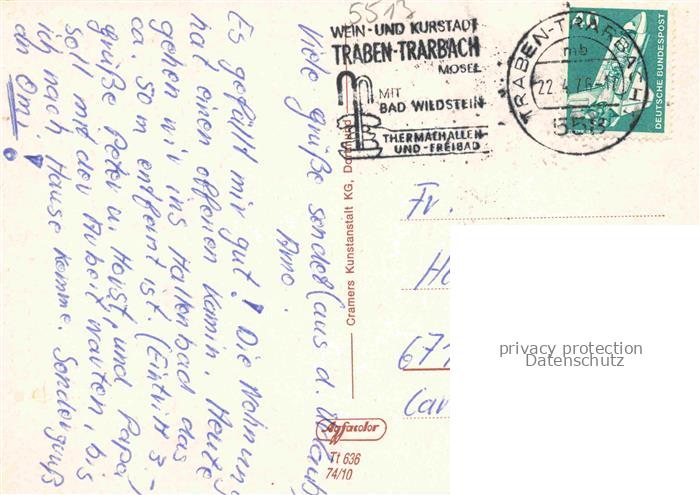 5513
WEIN- UND KURSTADT
TRABEN-TRARBACH
MOSEL
MIT
BAD WILDSTEIN
THERMALHALLEN
UND -FREIBAD
TRABEN-TRARBACH
mb
22.4.76
5513
DEUTSCHE BUNDESPOST
Viele Grüße sendet (aus d. Urlaub)
Arno.
Es gefällt mir gut! Die Wohnung
hat einen offenen Kamin. Heute
gehen wir ins Hallenbad das
ca. 50m entfernt ist. (Eintritt 3.-)
grüße Peter u. Horst, und Papa
soll mit der Arbeit warten, bis
ich nach Hause komme. Sondergruß
an Omi!
Cramers Kunstanstalt KG, Dortmund
Agfacolor
Tt 636
74/10
Fr.
671
privacy protection
Datenschutz